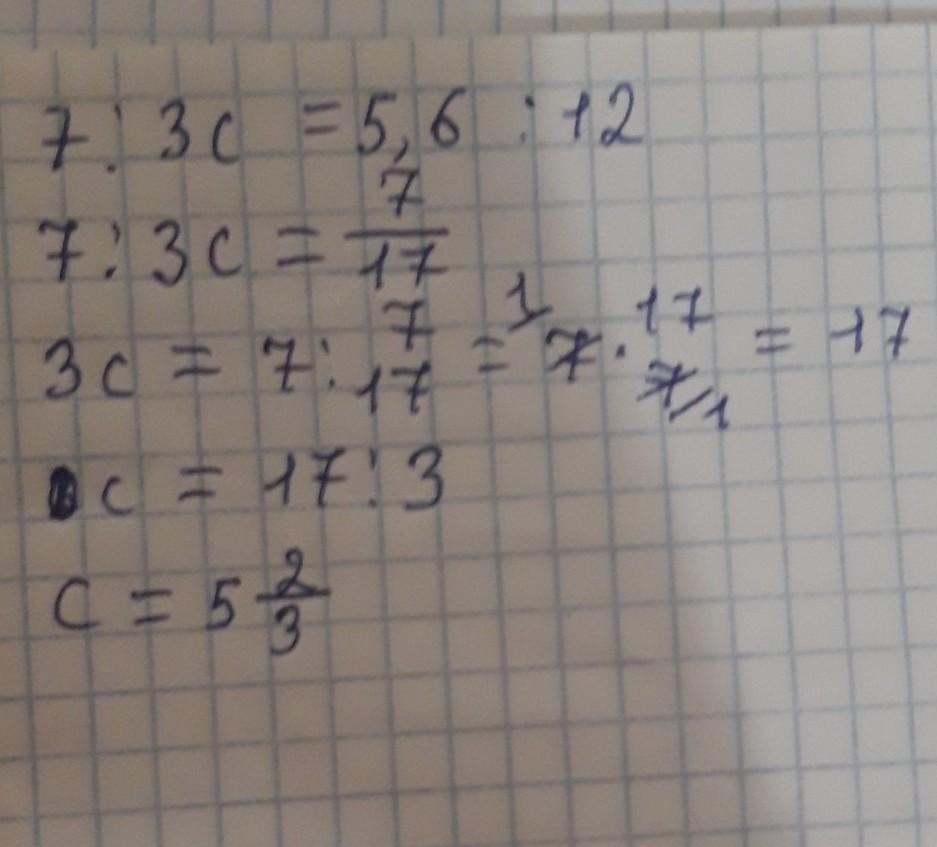 7 : 3c = 5,6 : 12
7 : 3c = 7/17
3c = 7 : 7/17 = 7 1 · 17/7 1 = 17
c = 17 : 3
c = 5 2/3